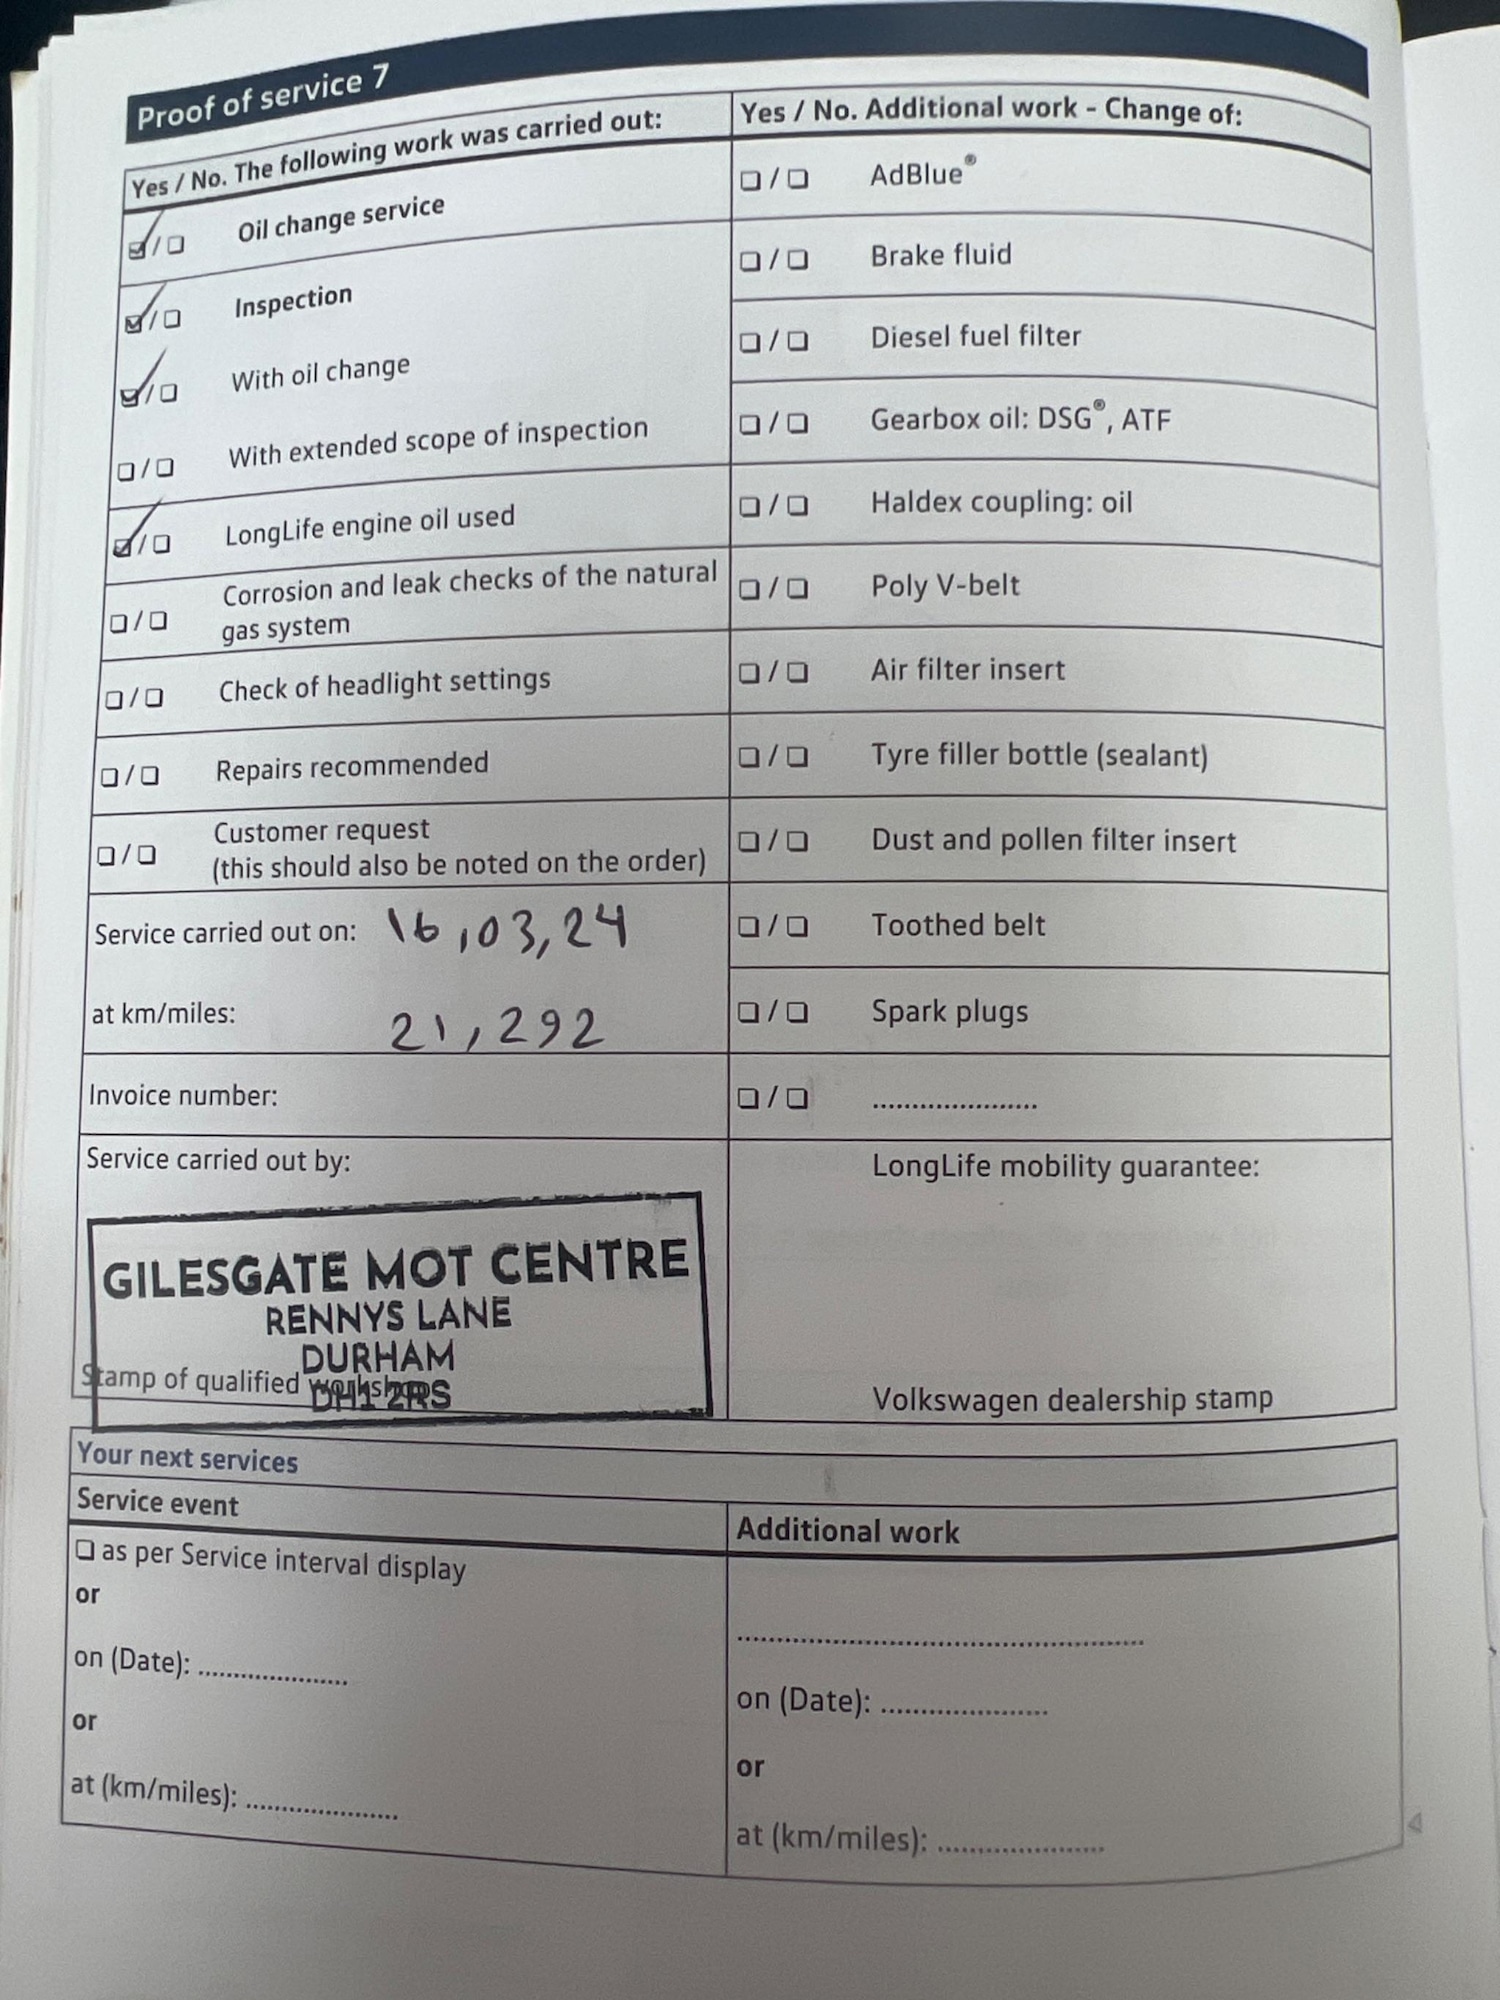 Proof of service 7
Yes / No. The following work was carried out:
☑/☐ Oil change service
☑/☐ Inspection
☑/☐ With oil change
☐/☐ With extended scope of inspection
☑/☐ LongLife engine oil used
☐/☐ Corrosion and leak checks of the natural
gas system
☐/☐ Check of headlight settings
☐/☐ Repairs recommended
☐/☐ Customer request
(this should also be noted on the order)
Service carried out on: 16,03,24
at km/miles: 21,292
Invoice number:
Service carried out by:
GILESGATE MOT CENTRE
RENNYS LANE
DURHAM
DH1 2RS
Stamp of qualified workshop
Yes / No. Additional work - Change of:
☐/☐ AdBlue®
☐/☐ Brake fluid
☐/☐ Diesel fuel filter
☐/☐ Gearbox oil: DSG®, ATF
☐/☐ Haldex coupling: oil
☐/☐ Poly V-belt
☐/☐ Air filter insert
☐/☐ Tyre filler bottle (sealant)
☐/☐ Dust and pollen filter insert
☐/☐ Toothed belt
☐/☐ Spark plugs
☐/☐ .....................
LongLife mobility guarantee:
Volkswagen dealership stamp
Your next services
Service event
☐ as per Service interval display
or
on (Date): ...................
or
at (km/miles): ...................
Additional work
..................................................
on (Date): .....................
or
at (km/miles): .....................